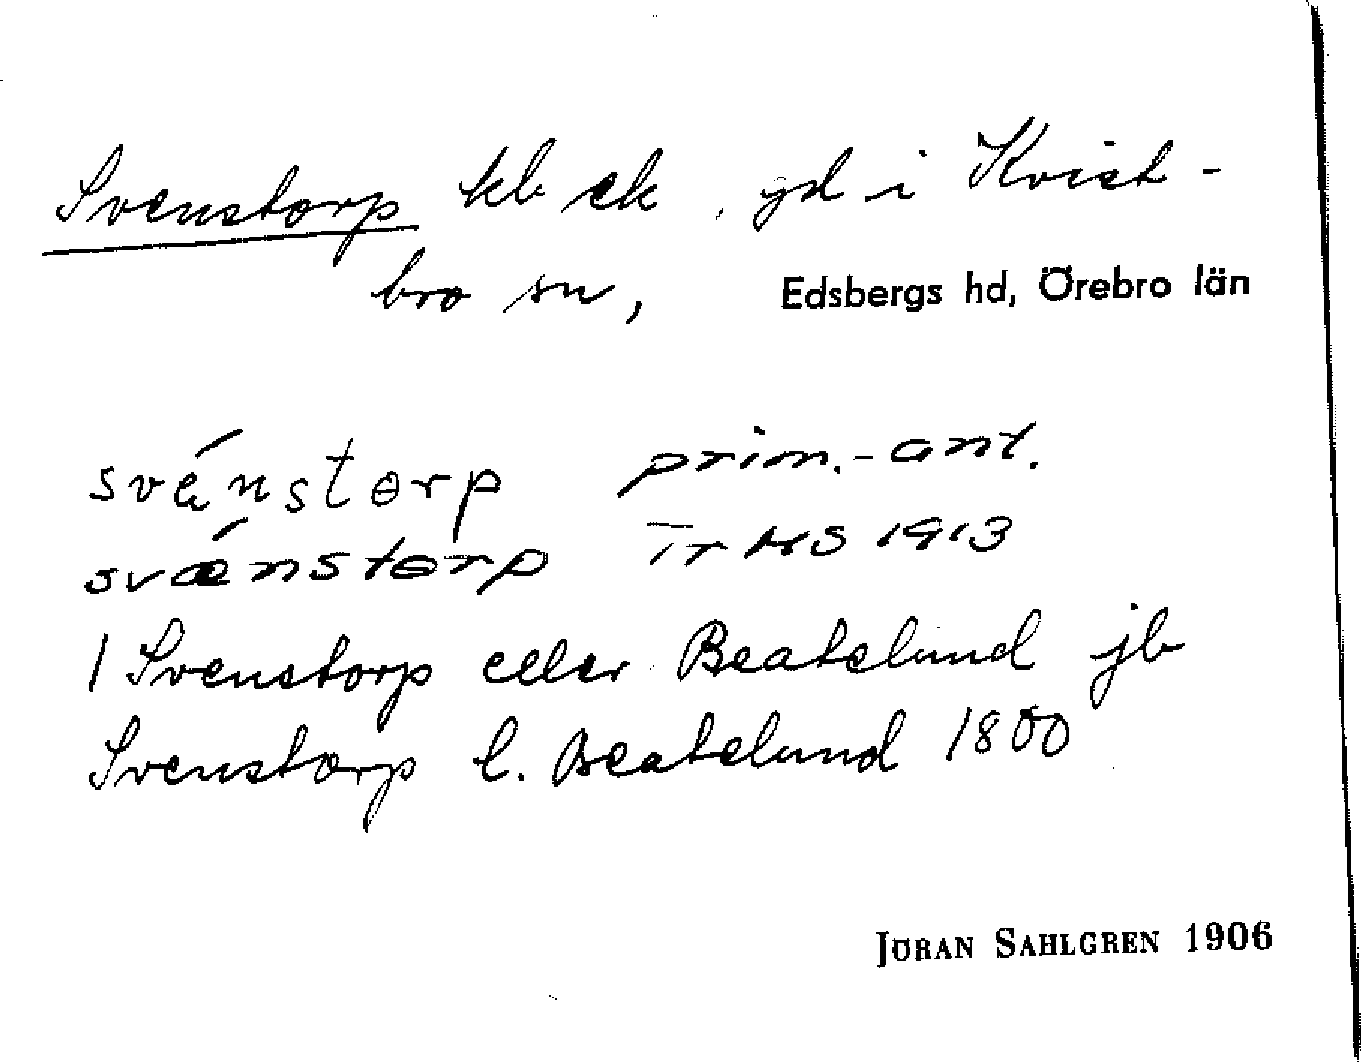 Svenstorp kb ek, gd i Kvist-
bro sn, Edsbergs hd, Örebro län
svǽnstɵrp prim.-ant.
svǽnstɵrp Tr MS 1913
/ Svenstorp eller Beatelund jb
Svenstorp l. Beatelund 1800
JÖRAN SAHLGREN 1906